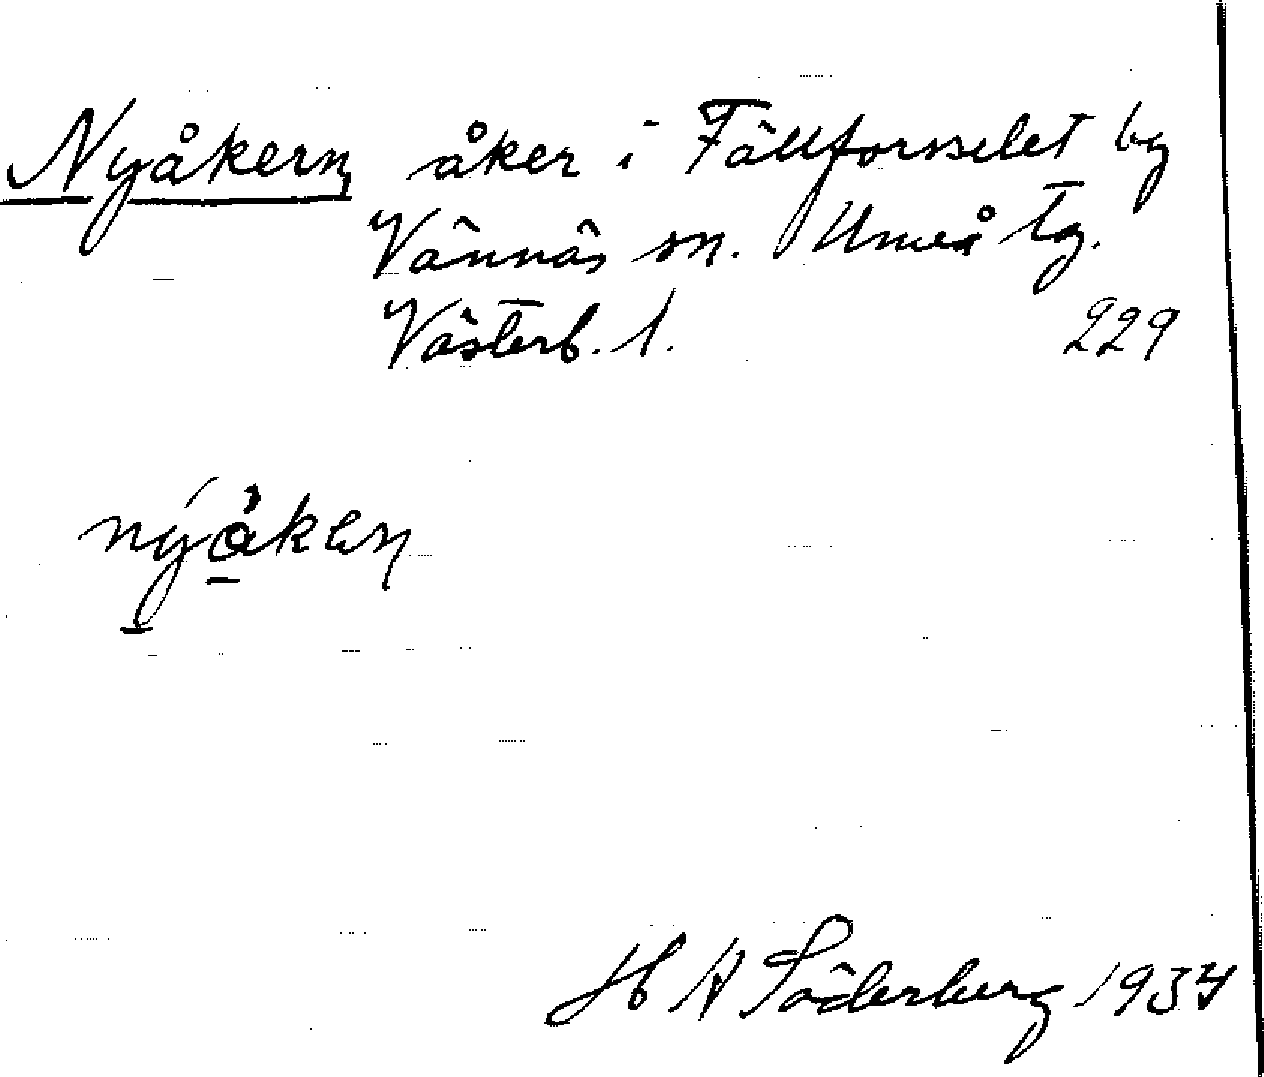 Nyåkern, åker i Fällforsselet by
Vännäs sn. Umeå tg.
Västerb. l.
229
nýåkern
H A Söderberg 1934